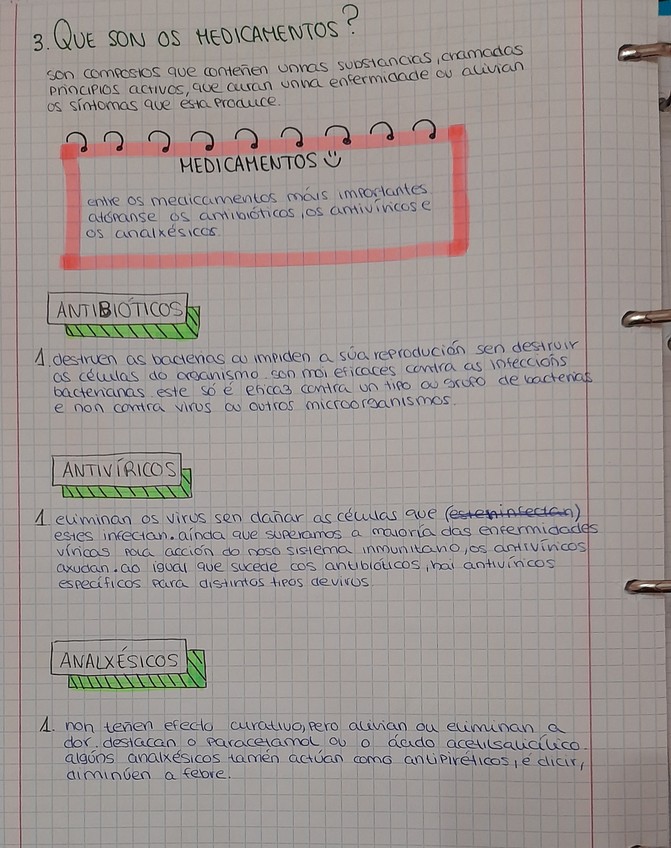 3. QUE SON OS MEDICAMENTOS?
son compostos que conteñen unhas substancias, chamadas
principios activos, que curan unha enfermidade ou alivian
os síntomas que esta produce.
MEDICAMENTOS
entre os medicamentos máis importantes
atópanse os antibióticos, os antivíricos e
os analxésicos.
ANTIBIÓTICOS
1. destruen as bacterias ou impiden a súa reprodución sen destruir
as células do organismo. son moi eficaces contra as infeccións
bacterianas. este só é eficaz contra un tipo ou grupo de bacterias
e non contra virus ou outros microorganismos.
ANTIVÍRICOS
1 eliminan os virus sen dañar as células que (esten infectan)
estes infectan. aínda que superamos a maioría das enfermidades
víricas pola acción do noso sistema inmunitario, os antivíricos
axudan. ao igual que sucede cos antibióticos, hai antivíricos
específicos para distintos tipos de virus.
ANALXÉSICOS
1. non teñen efecto curativo, pero alivian ou eliminan a
dor. destacan o paracetamol ou o ácido acetilsalicílico.
algúns analxésicos tamén actúan como antipiréticos, é dicir,
diminúen a febre.